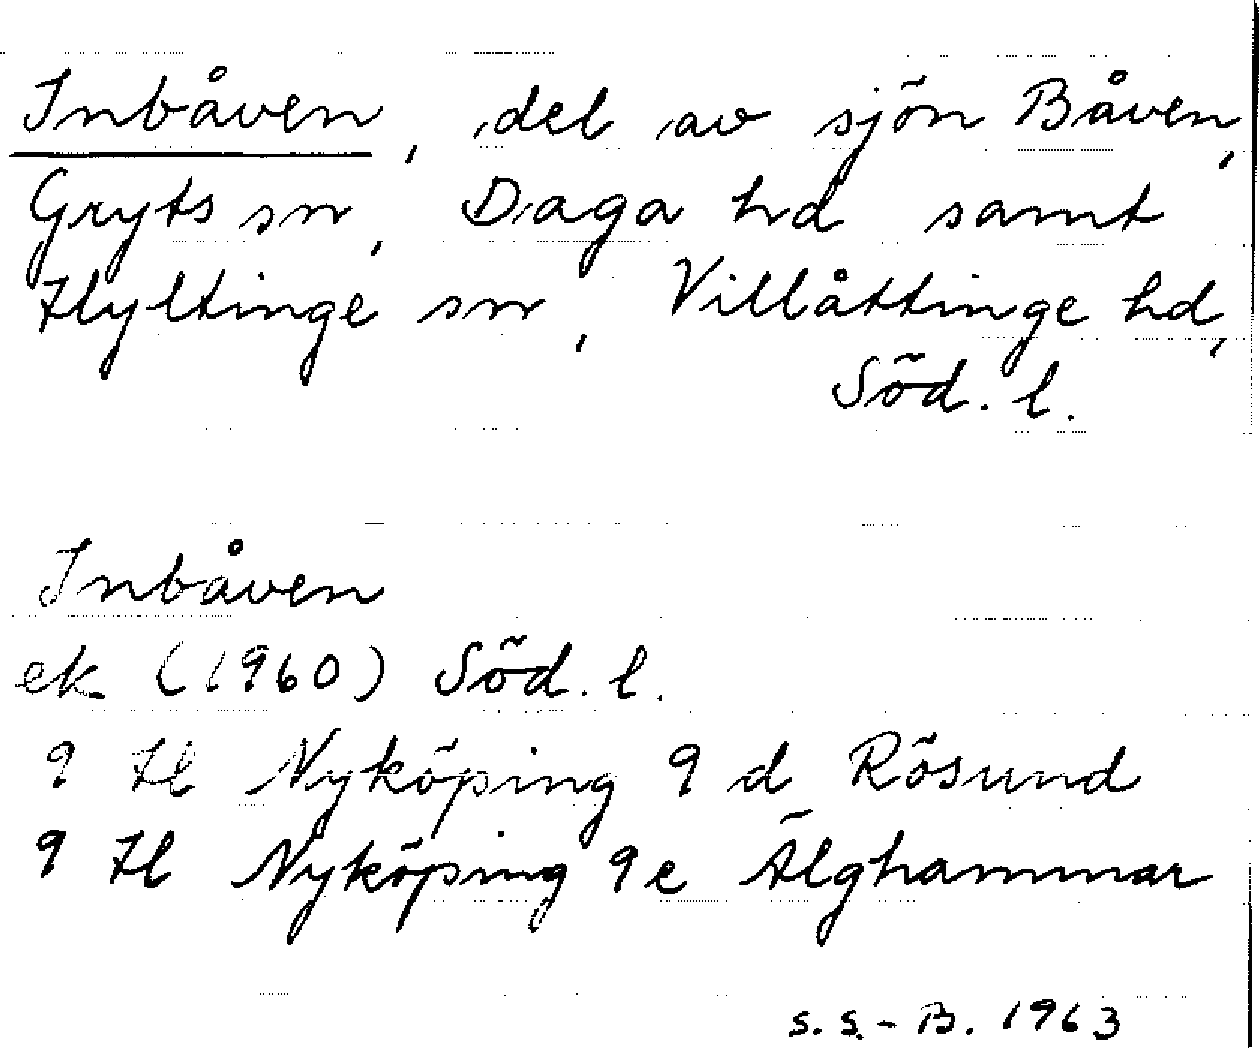 Inbåven, del av sjön Båven,
Gryts sn, Daga hd samt
Hyltinge sn, Villåttinge hd,
Söd. l.
Inbåven
ek (1960) Söd. l.
9 H Nyköping 9 d Rösund
9 H Nyköping 9 e Älghammar
S.S.-B. 1963